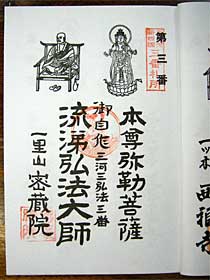 第三番
本尊弥勒菩薩
御自作 三河三弘法三番
流涕弘法大師
一里山 密蔵院